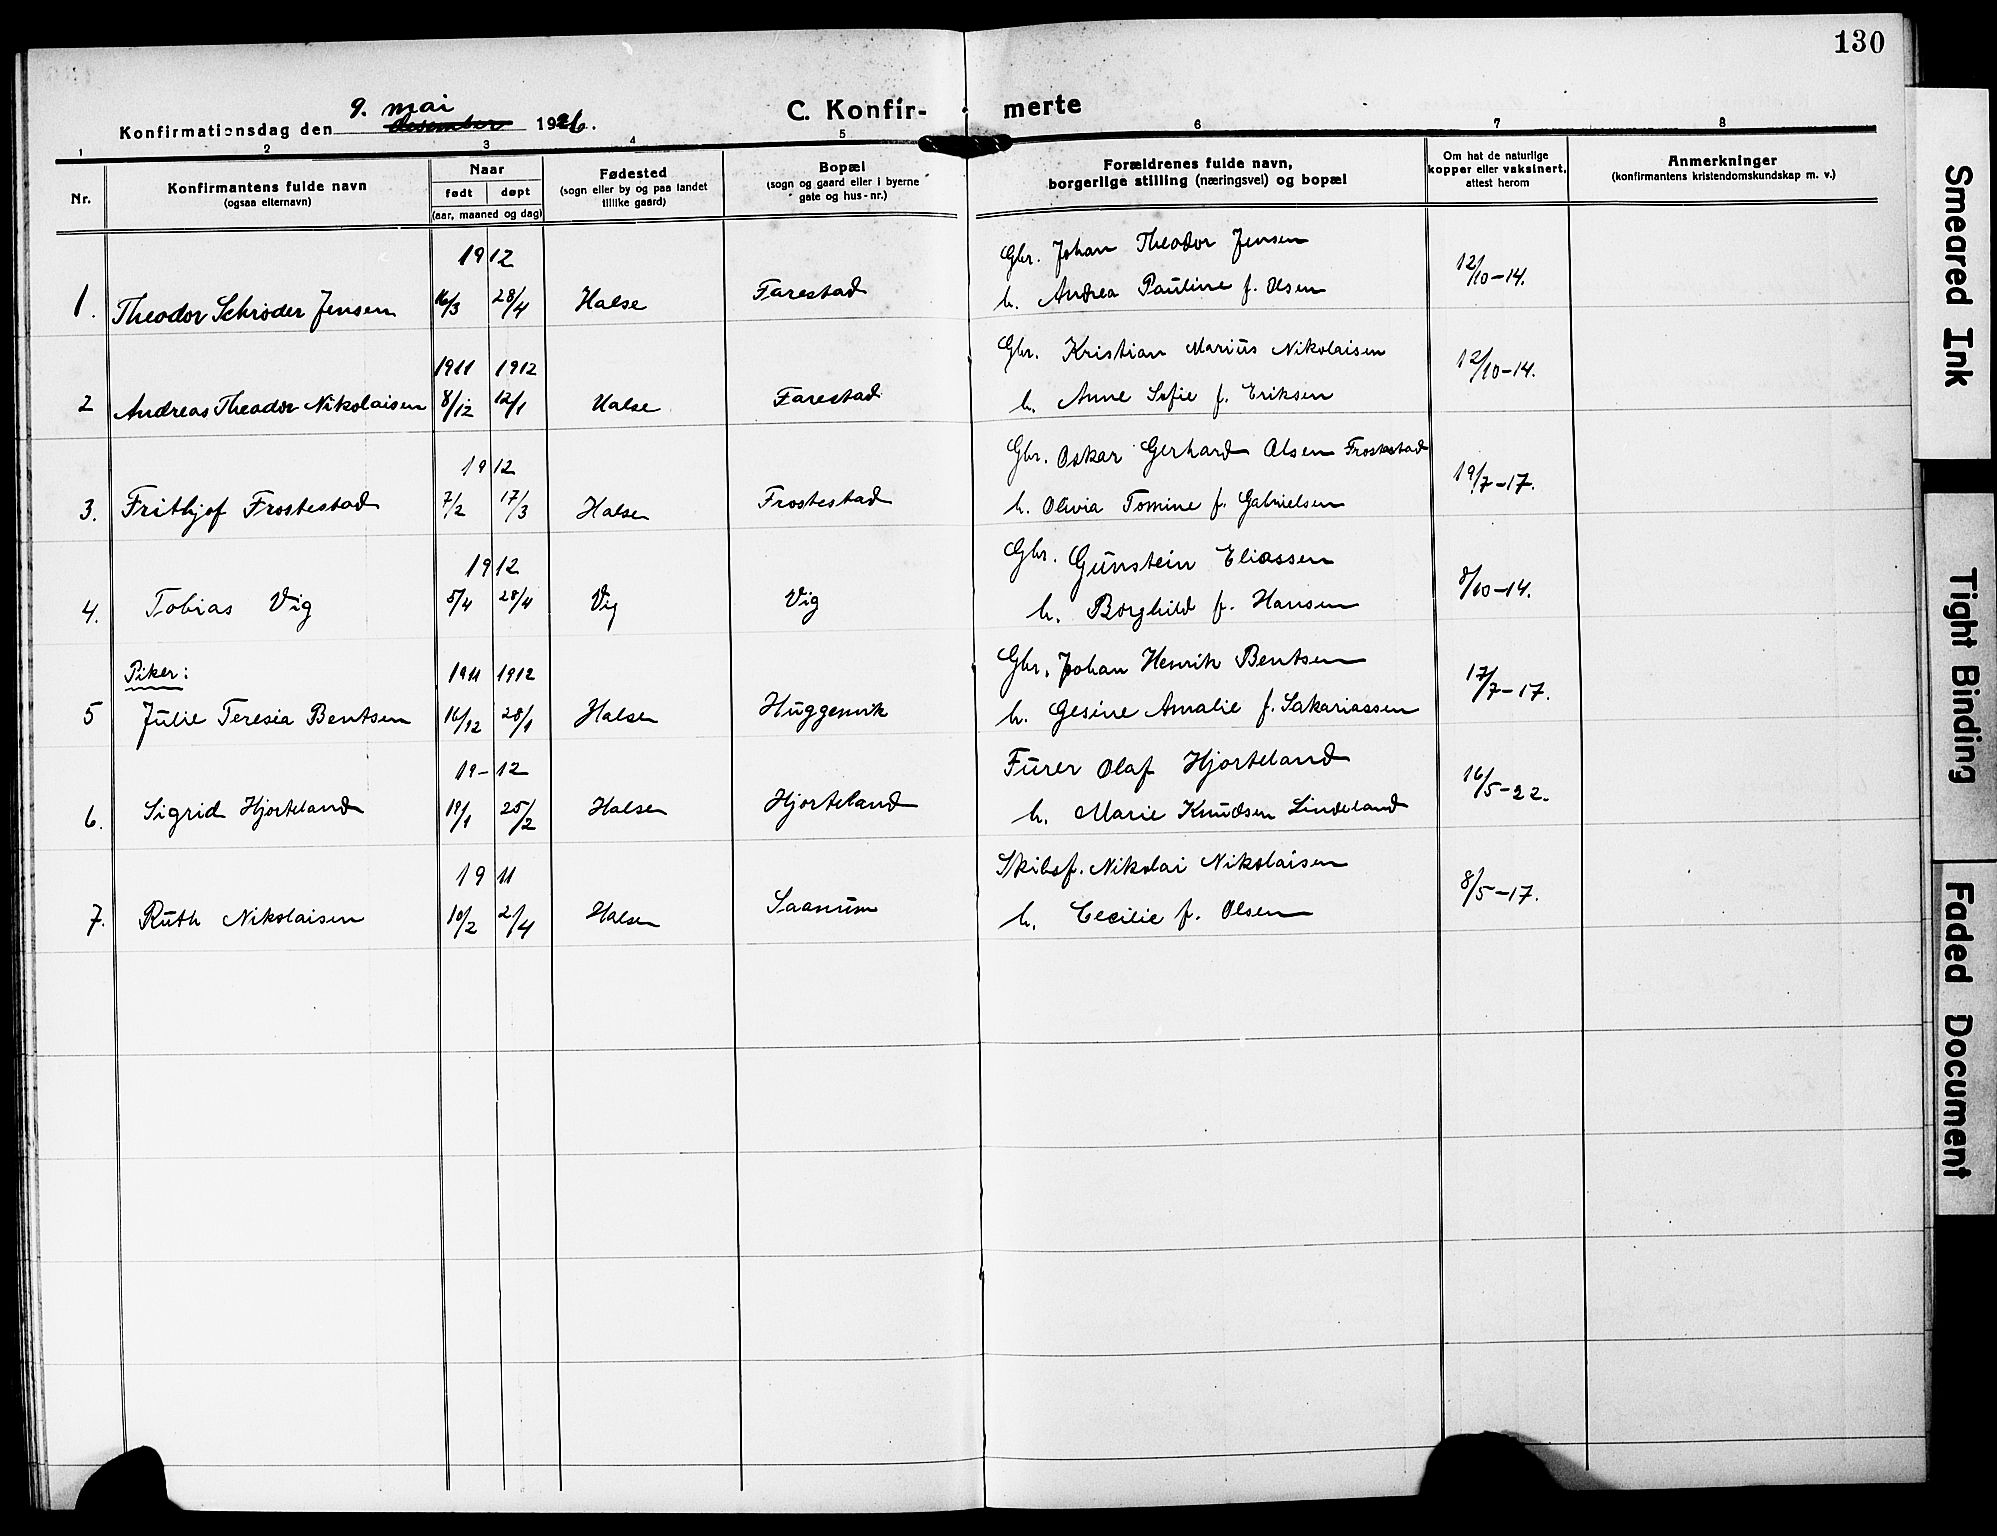 130
9. mai
Konfirmationsdag den desember 1926.
C. Konfir- merte
1 2 3 4 5 6 7 8
Nr.
Konfirmantens fulde navn
(ogsaa elternavn)
Naar
født døpt
(aar, maaned og dag)
Fødested
(sogn eller by og paa landet
tillike gaard)
Bopæl
(sogn og gaard eller i byerne
gate og hus-nr.)
Forældrenes fulde navn,
borgerlige stilling (næringsvei) og bopæl
Om hat de naturlige
kopper eller vaksinert,
attest herom
Anmerkninger
(konfirmantens kristendomskundskap m. v.)
1912 Gbr. Johan Theodor Jensen
1. Theodor Schrøder Jensen 16/3 28/4 Halse Farestad h. Andrea Pauline f. Olsen 12/10-14.
1911 1912 Gbr. Kristian Marius Nikolaisen
2 Andreas Theodor Nikolaisen 8/12 12/1 Halse Farestad h. Anne Sofie f. Eriksen 12/10-14.
1912 Gbr. Oskar Gerhard Olsen Frostestad
3. Frithjof Frostestad 7/2 17/3 Halse Frostestad h. Olivia Tomine f. Gabrielsen 19/7-17.
1912 Gbr. Gunstein Eliassen
4. Tobias Vig 5/4 28/4 Vig Vig h. Borghild f. Hansen 8/10-14.
Piker: 1911 1912 Gbr. Johan Henrik Bentsen
5 Julie Teresia Bentsen 16/12 28/1 Halse Huggenvik h. Gesine Amalie f. Sakariassen 17/7-17.
19-12 Furer Olaf Hjorteland
6. Sigrid Hjorteland 18/1 25/2 Halse Hjorteland h. Marie Knudsen Lindeland 16/5-22.
1911 Skibsf. Nikolai Nikolaisen
7. Ruth Nikolaisen 10/2 2/4 Halse Saanum h. Cecilie f. Olsen 8/5-17.
Smeared Ink
Tight Binding
Faded Document